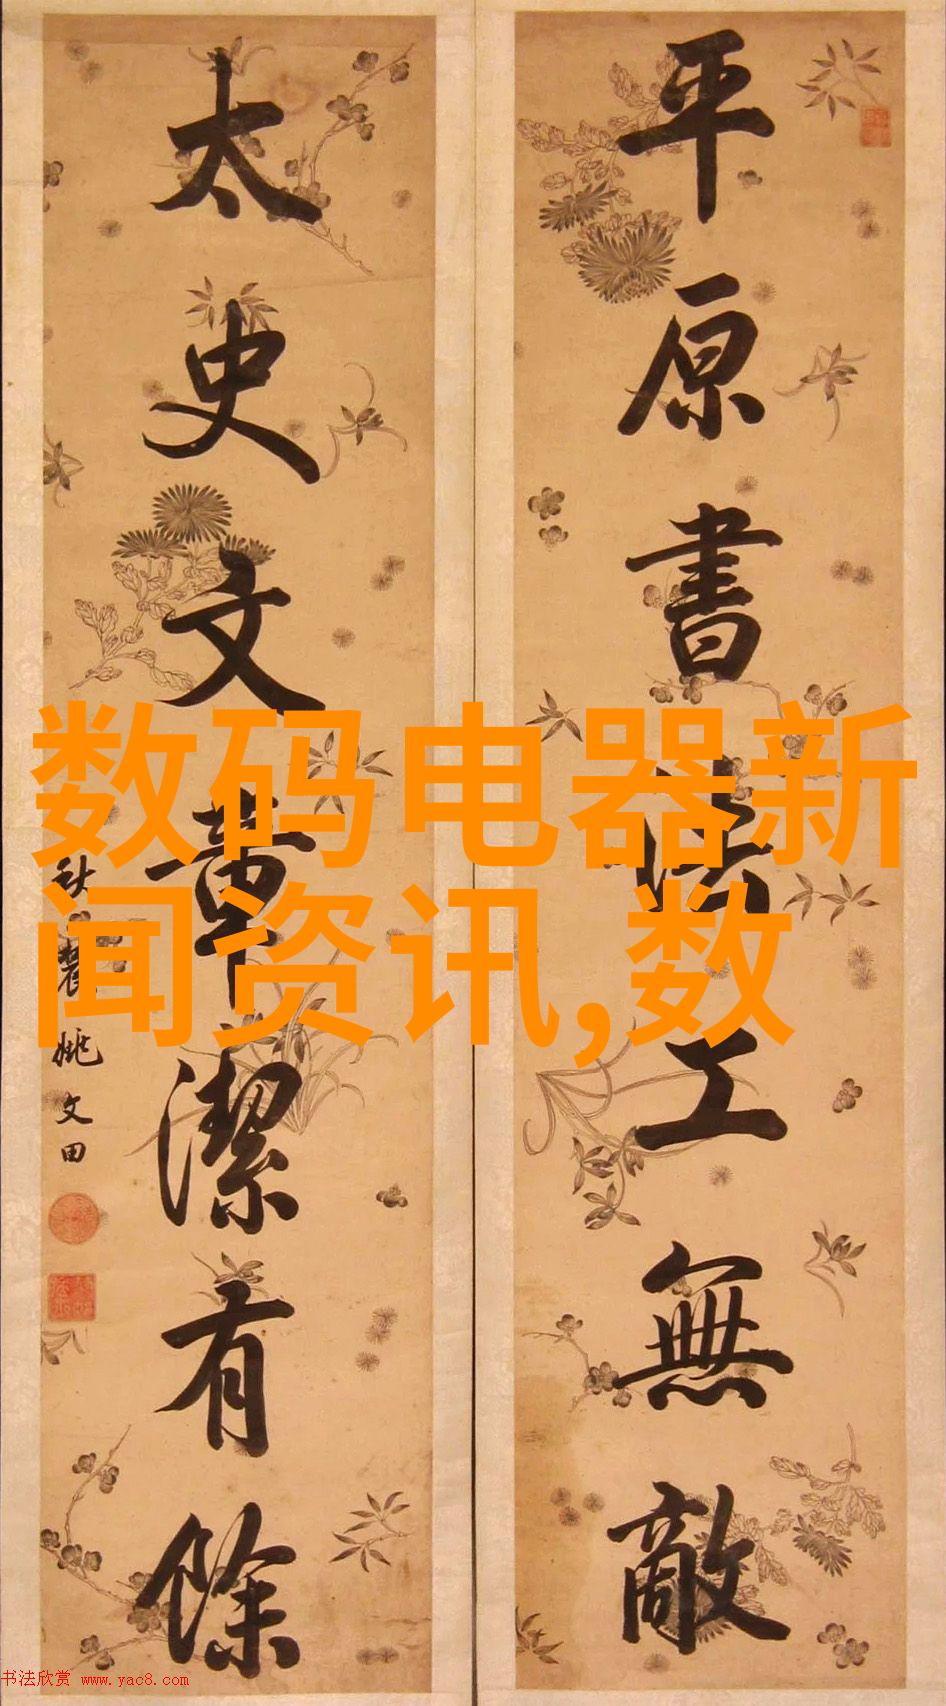 平原書法工無敵
太史文章潔有餘
秋農姚文田
数码电器新
闻资讯,数
书法欣赏 www.yac8.com